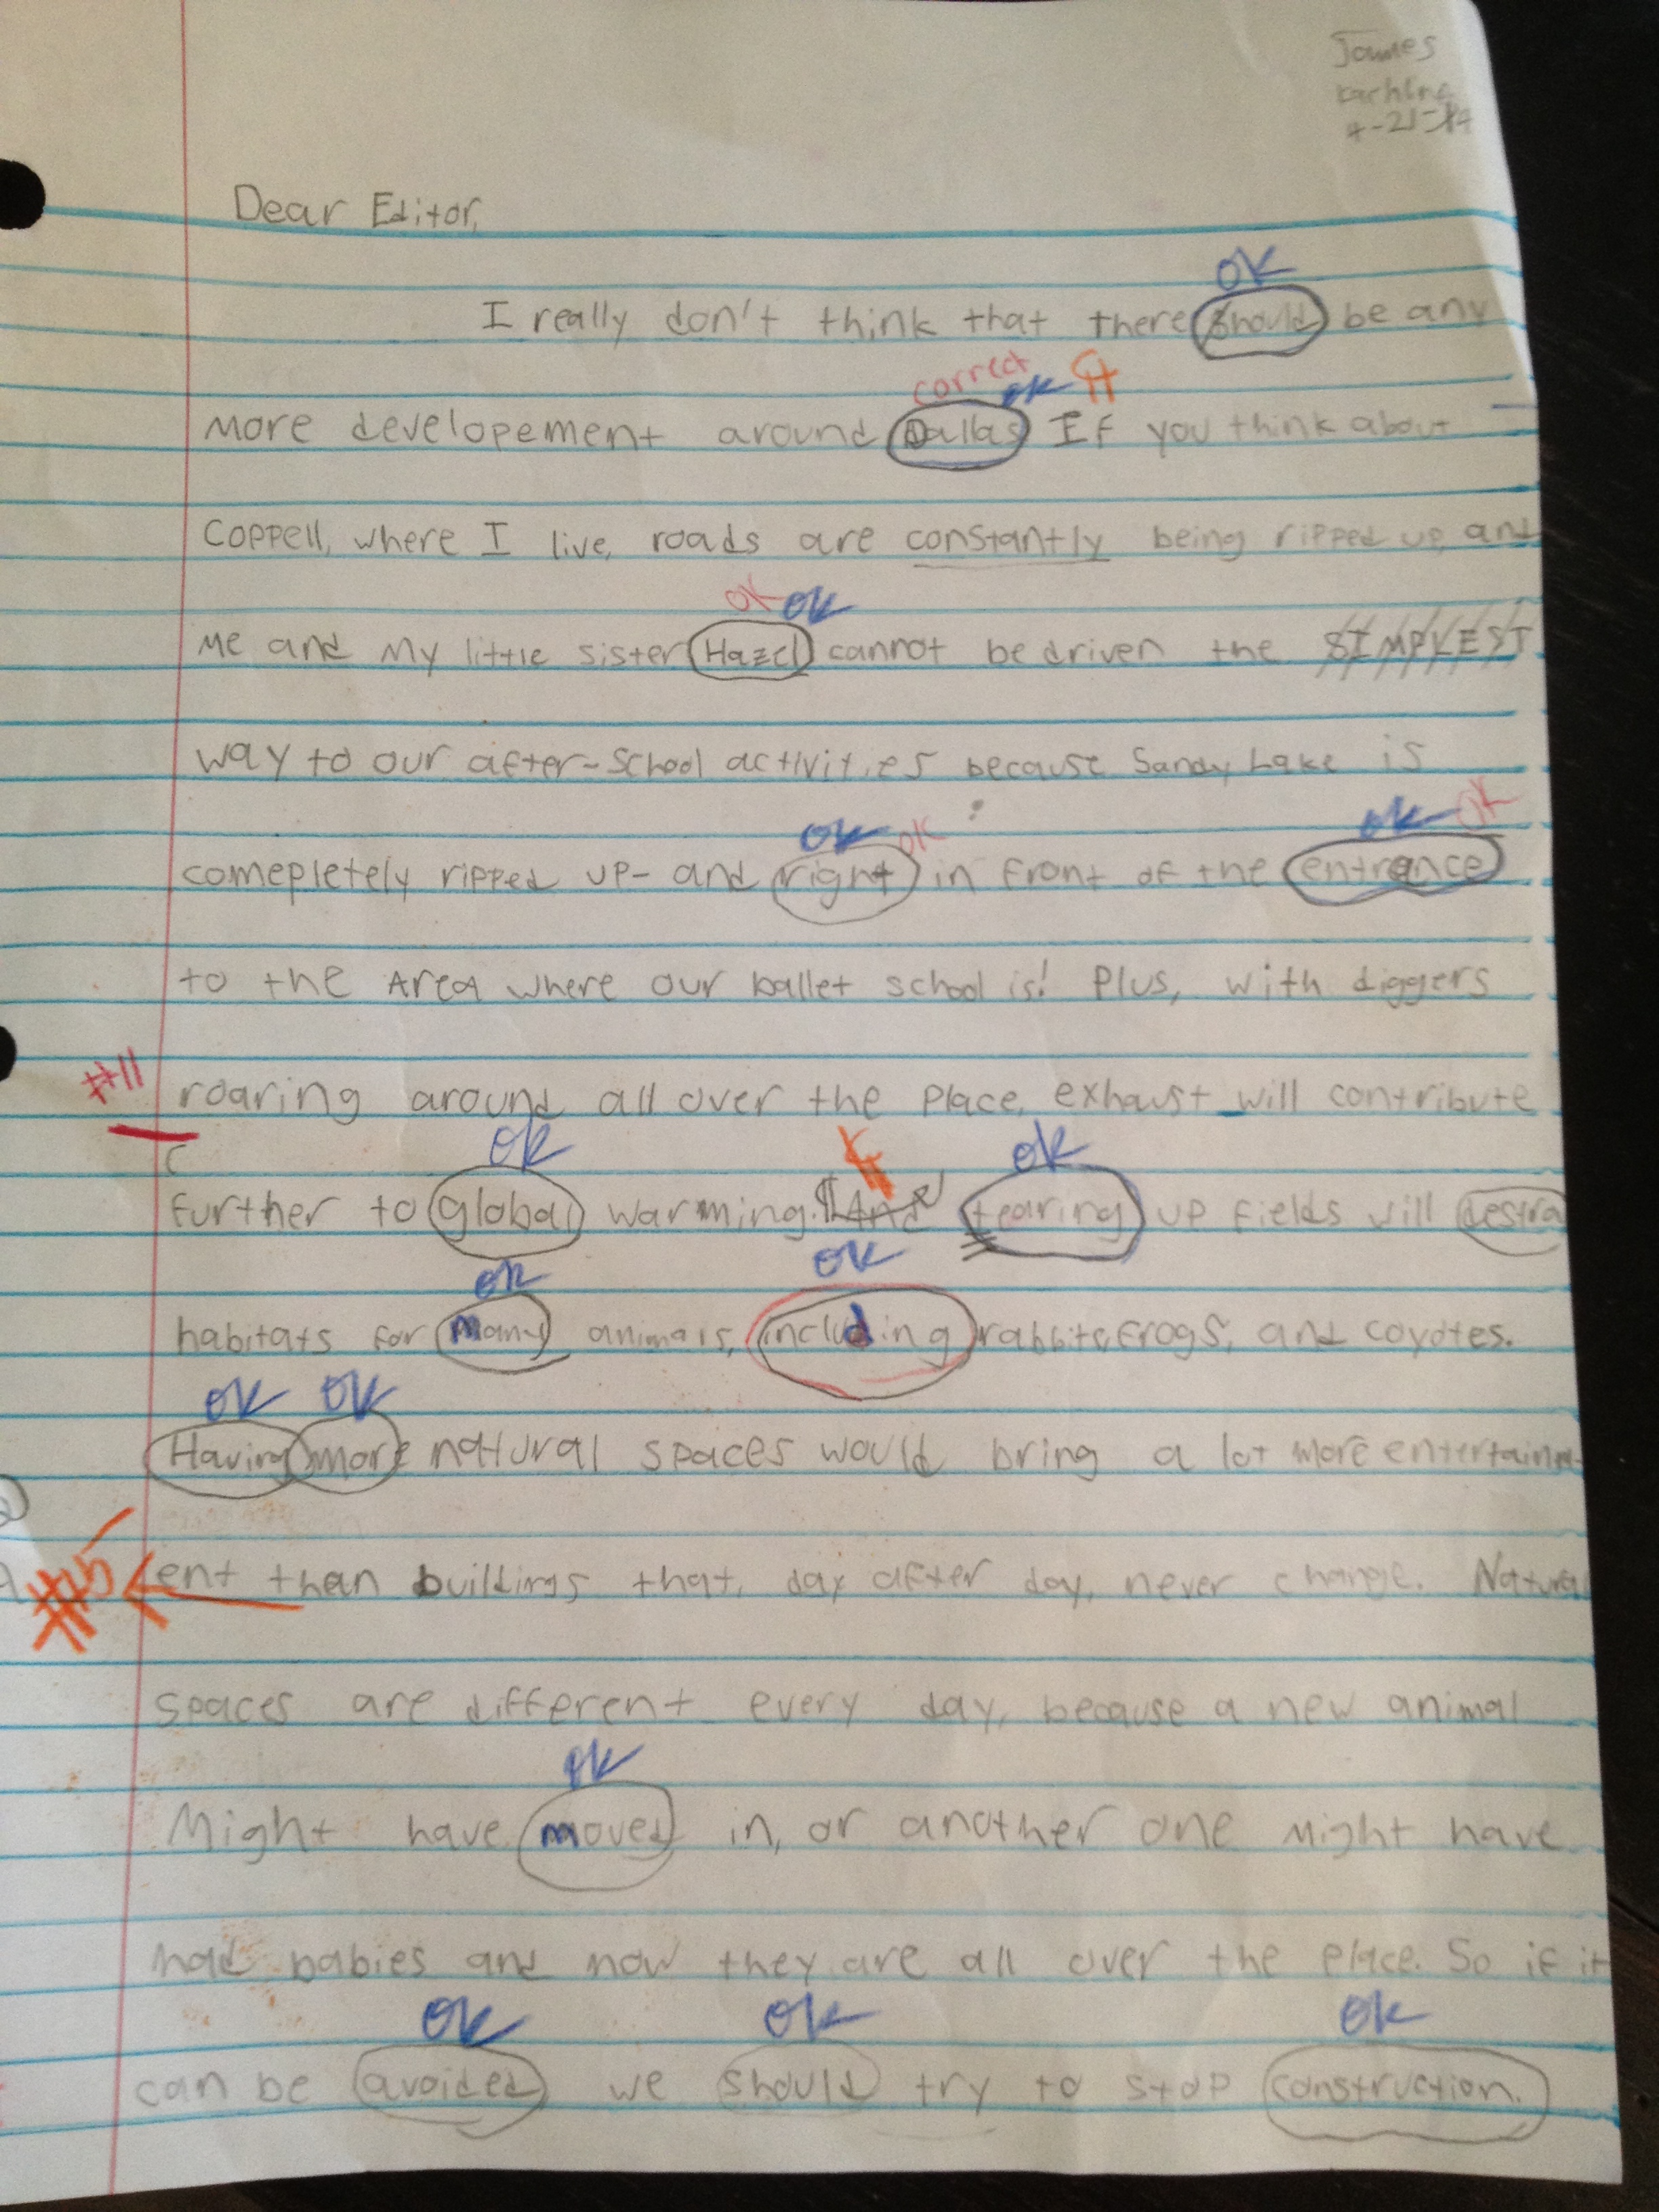 James
4-21-14
Dear Editor,
OK
I really don't think that there should be any
correct ok
more developement around Dallas If you think about
Coppell, where I live, roads are constantly being ripped up, and
OK OK
me and my little sister Hazel cannot be driven the SIMPLEST
way to our after-school activities because Sandy Lake is
OK OK OK OK
comepletely ripped up- and right in front of the entrance
to the Area where our ballet school is! Plus, with diggers
#11 roaring around all over the place, exhaust will contribute
OK OK
further to global warming. And tearing up fields will
OK OK
habitats for many animals, including rabbits, frogs, and coyotes.
OK OK
Having more natural spaces would bring a lot more entertainm-
#5 ent than buildings that, day after day, never change. Natural
spaces are different every day, because a new animal
OK
Might have moved in, or another one might have
had babies and now they are all over the place. So if it
OK OK OK
can be avoided we should try to stop construction.